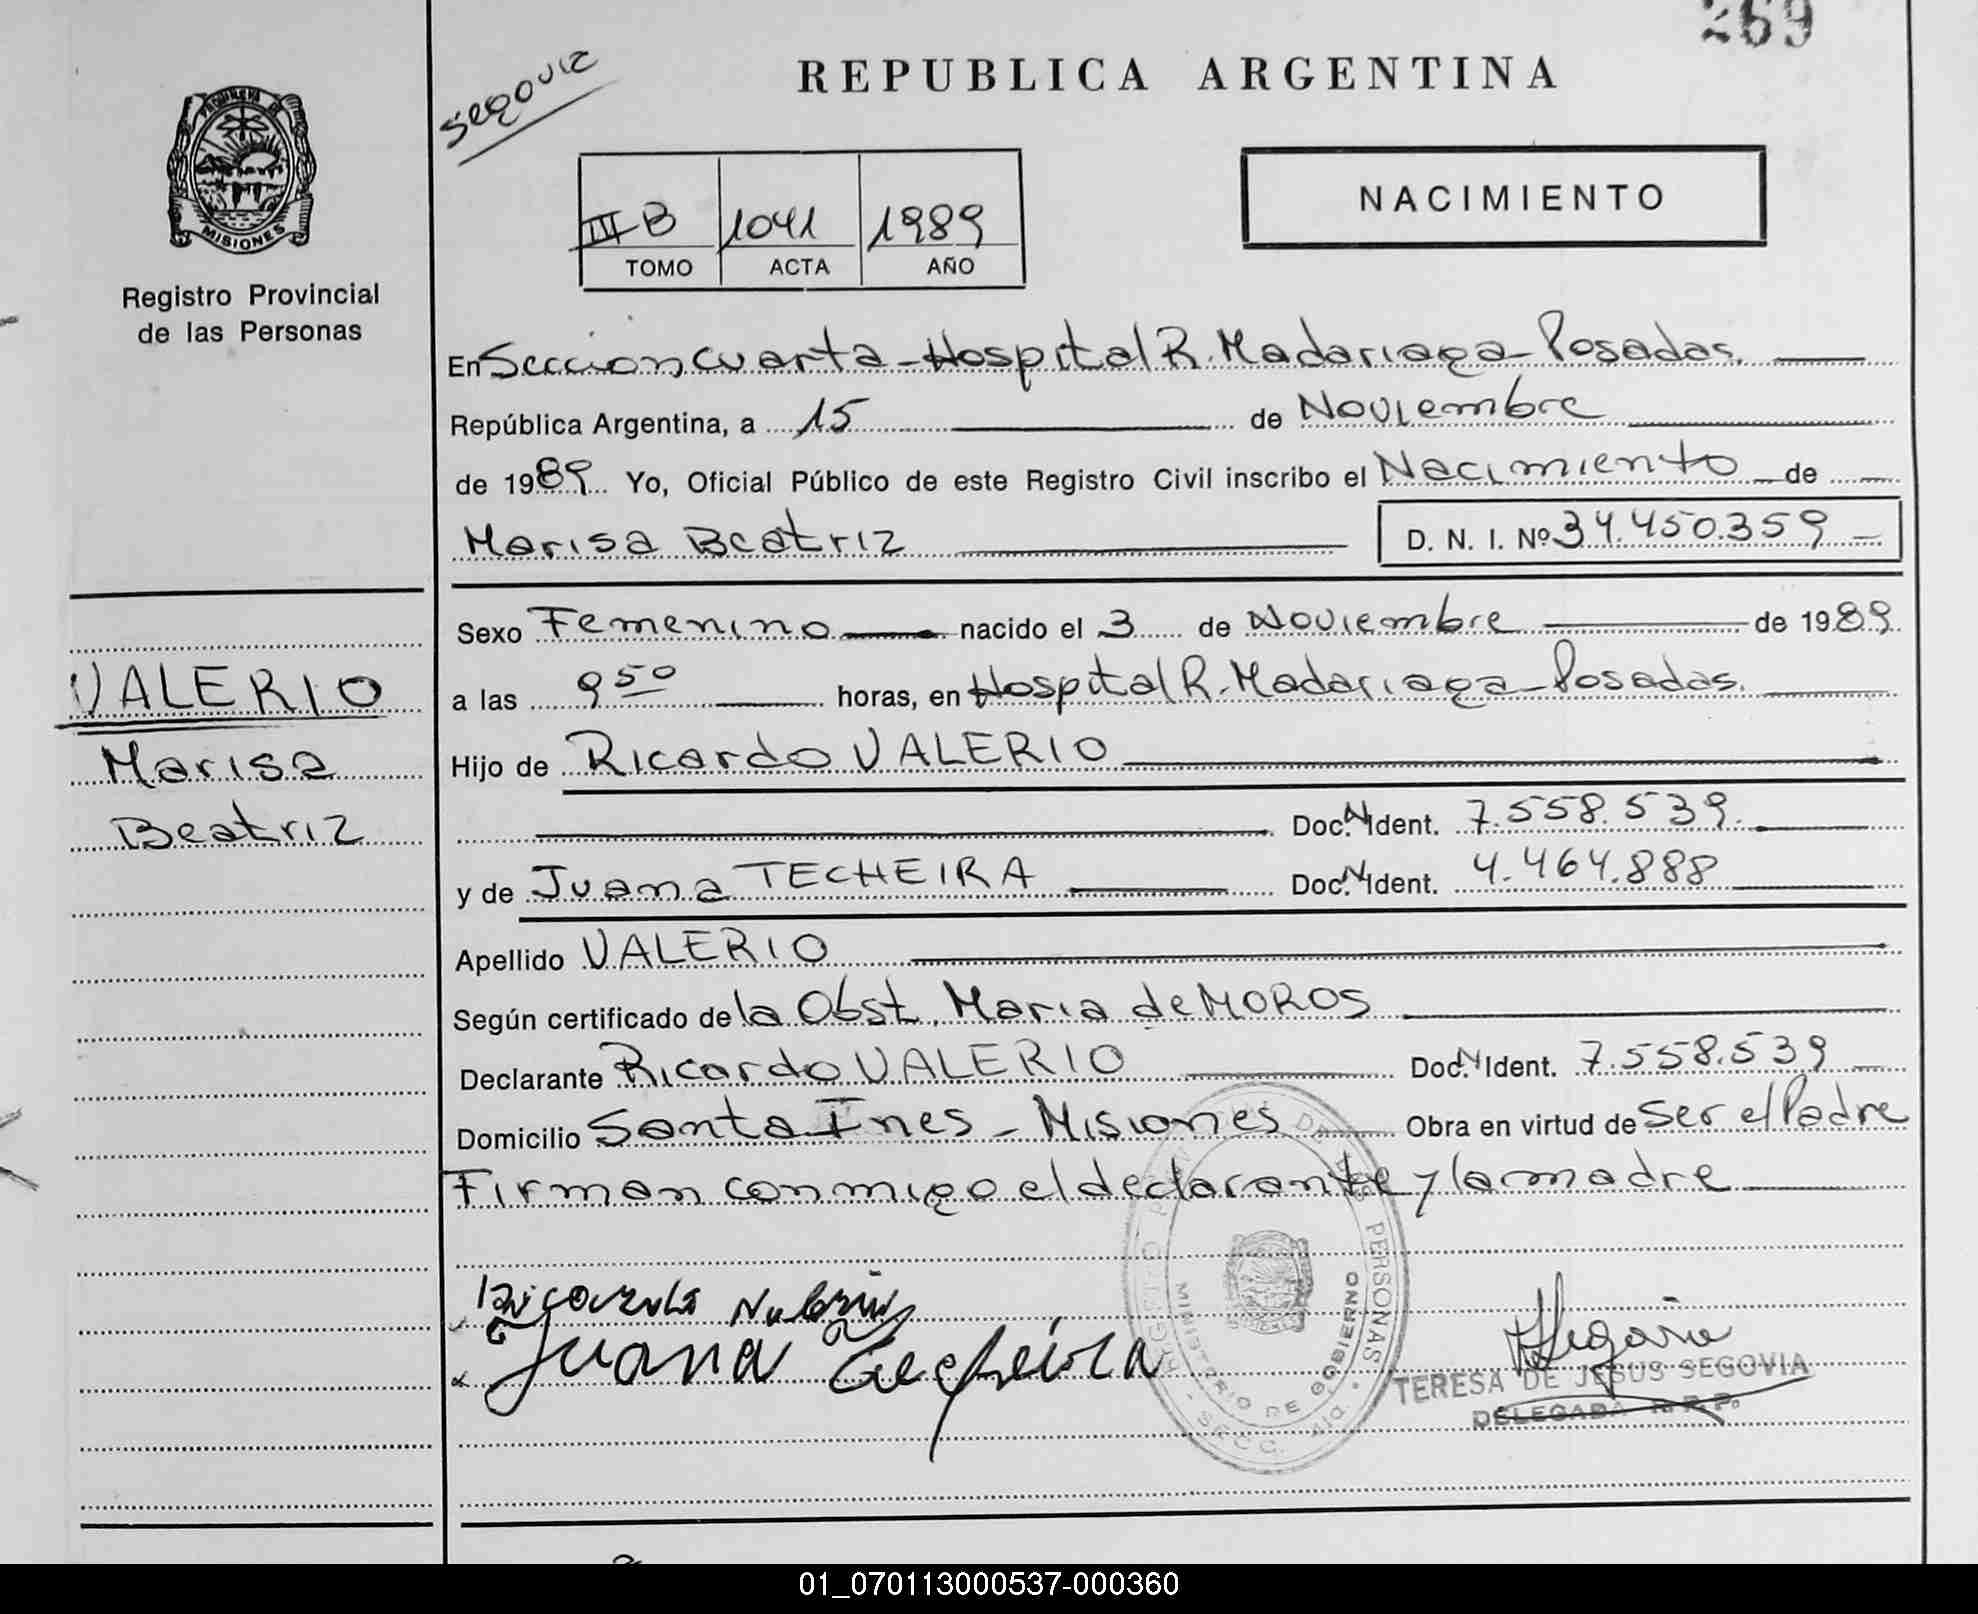 269
Segovia
REPUBLICA ARGENTINA
MISIONES
Registro Provincial
de las Personas
III B 1041 1989
TOMO ACTA AÑO
NACIMIENTO
En Seccion cuarta - Hospital R. Madariaga - Posadas.
República Argentina, a 15 de Noviembre
de 1989 Yo, Oficial Público de este Registro Civil inscribo el Nacimiento de
Marisa Beatriz D. N. I. Nº 34.450.359
Sexo Femenino nacido el 3 de Noviembre de 1989
VALERIO
Marisa
Beatriz
a las 9 50 horas, en Hospital R. Madariaga - Posadas.
Hijo de Ricardo VALERIO
Doc. N Ident. 7.558.539.
y de Juana TECHEIRA Doc. N Ident. 4.464.888
Apellido VALERIO
Según certificado de la Obst. Maria de MOROS
Declarante Ricardo VALERIO Doc. N Ident. 7.558.539
Domicilio Santa Ines - Misiones Obra en virtud de Ser el Padre
Firman conmigo el declarante y la madre
Juana Techeira
MINISTERIO DE GOBIERNO
TERESA DE JESUS SEGOVIA
DELEGADA R. P. P.
01_070113000537-000360